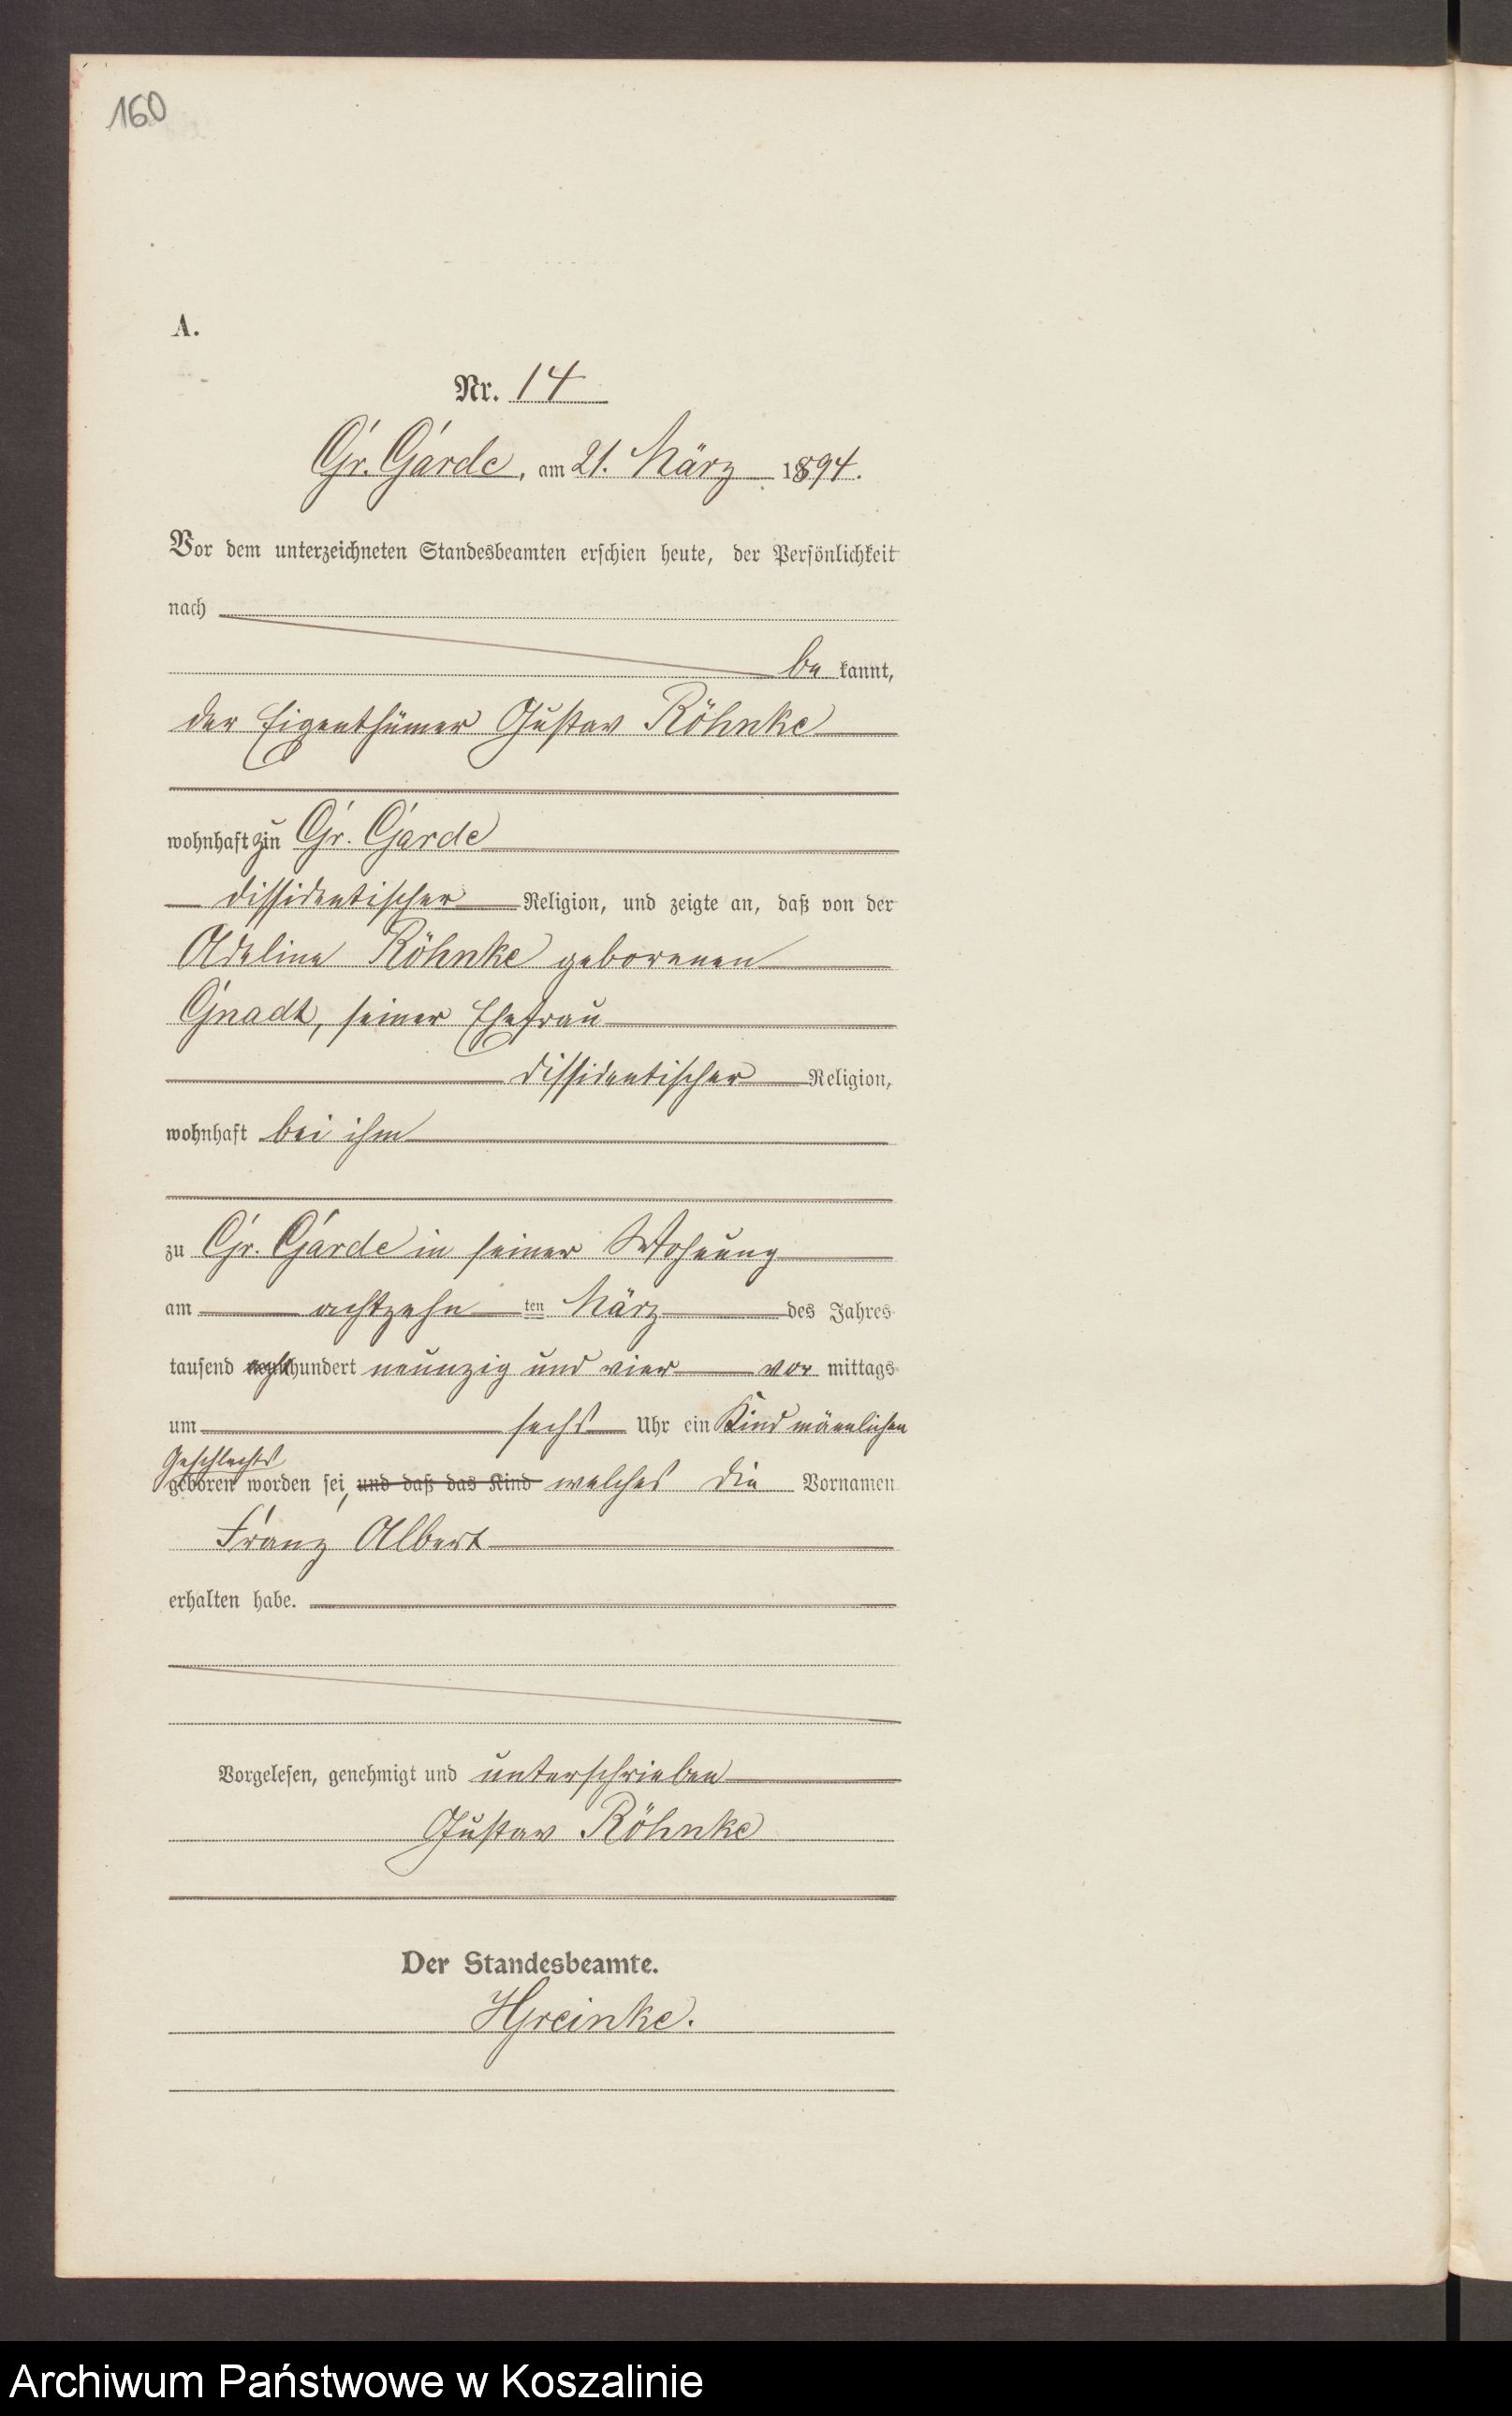 160
A.
Nr. 14
Gr. Garde, am 21. März 1894.
Vor dem unterzeichneten Standesbeamten erschien heute, der Persönlichkeit
nach
be kannt,
der Eigenthümer Gustav Röhnke
wohnhaft zu in Gr. Garde
dissidentischer Religion, und zeigte an, daß von der
Adeline Röhnke geborenen
Gnadt, seiner Ehefrau
dissidentischer Religion,
wohnhaft bei ihm
zu Gr. Garde in seiner Wohnung
am achtzehn ten März des Jahres
tausend achthundert neunzig und vier vor mittags
um sechs Uhr ein Kind männlichen
Geschlechts
geboren worden sei, und daß das Kind welches die Vornamen
Franz Albert
erhalten habe.
Vorgelesen, genehmigt und unterschrieben
Gustav Röhnke
Der Standesbeamte.
HGreinke.
Archiwum Państwowe w Koszalinie